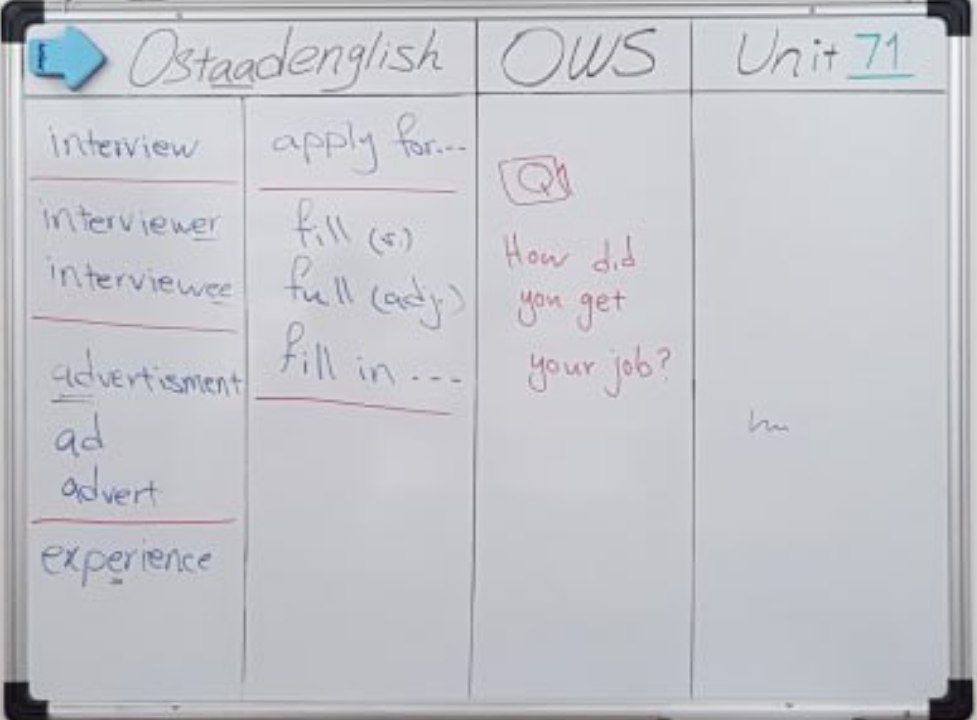 Ostaadenglish
OWS
Unit 71
interview
interviewer
interviewee
advertisment
ad
advert
experience
apply for...
fill (v.)
full (adj.)
fill in ---
Q
How did
you get
your job?